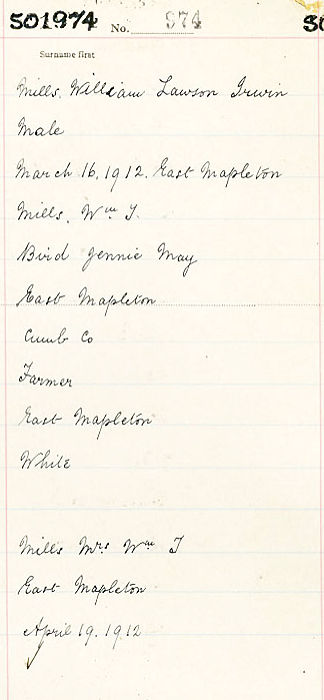 501974 No. 974
Surname first
Mills, William Lawson Irwin
Male
March 16, 1912. East Mapleton
Mills, Wm T.
Bird Jennie May
East Mapleton
Cumb Co
Farmer
East Mapleton
White
Mills Mrs Wm T
East Mapleton
April 19. 1912